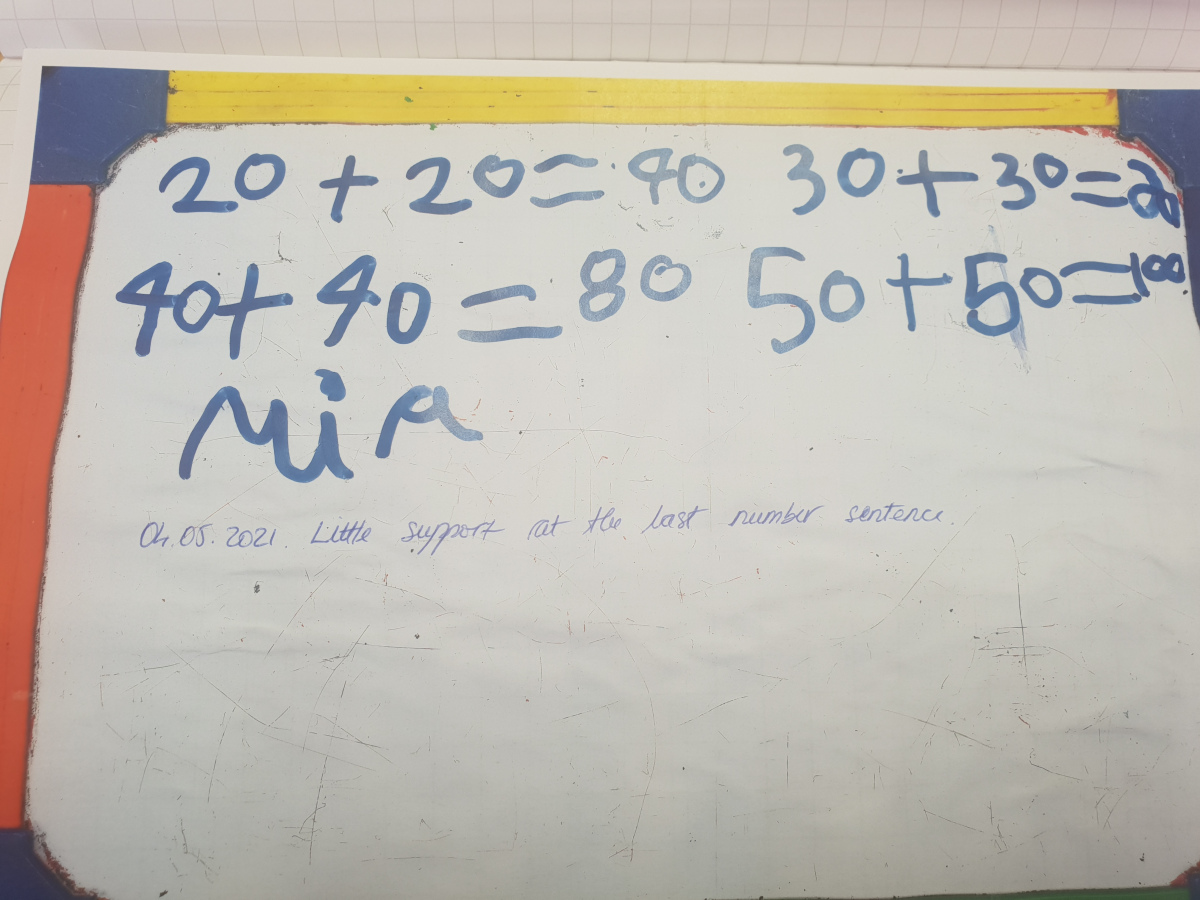 20 + 20 = 40 30 + 30 =
40 + 40 = 80 50 + 50 = 100
Mia
04.05.2021. Little support at the last number sentence.